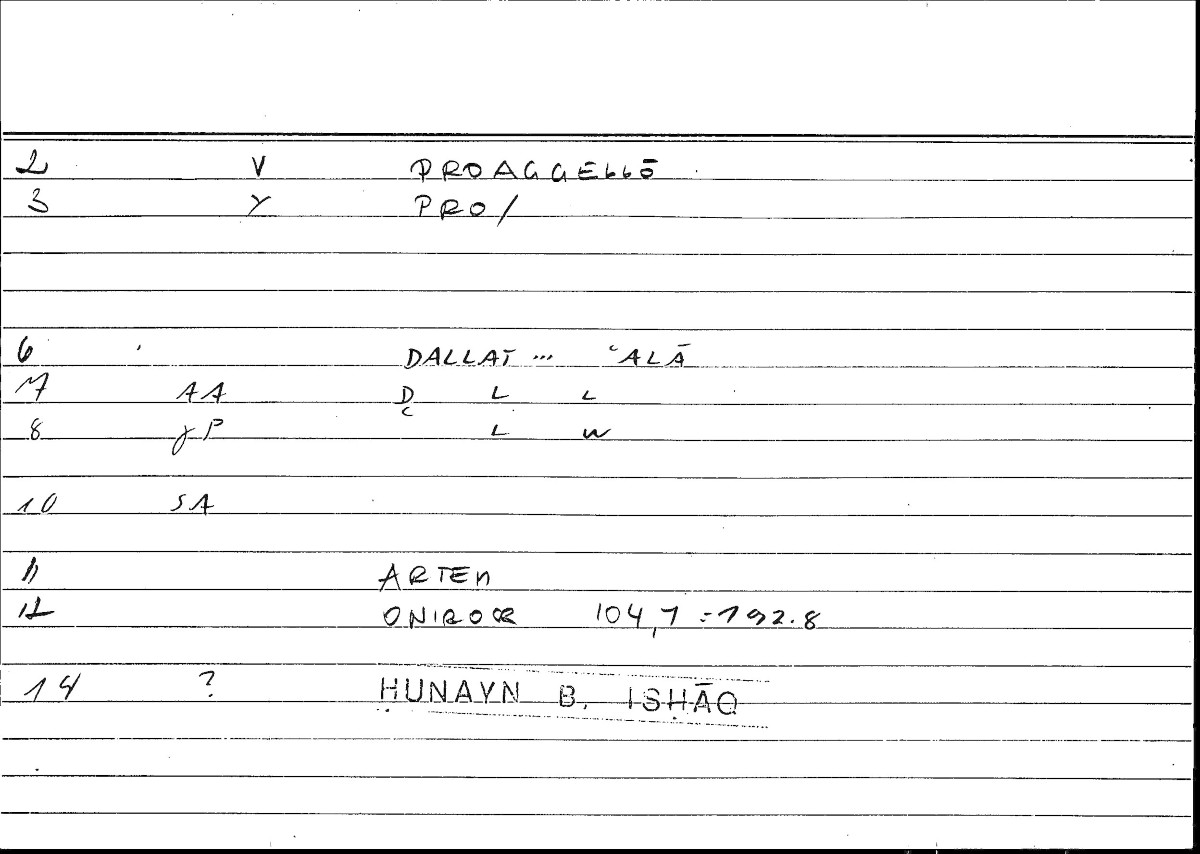 2 V PROAGGELLŌ
3 Y PRO/
6 DALLAT ... ʿALĀ
7 AA D L L
8 gP ʿ L W
10 SA
11 ARTEM
12 ONIROCR 104,7 = 192.8
14 ? ḤUNAYN B. ISḤĀQ